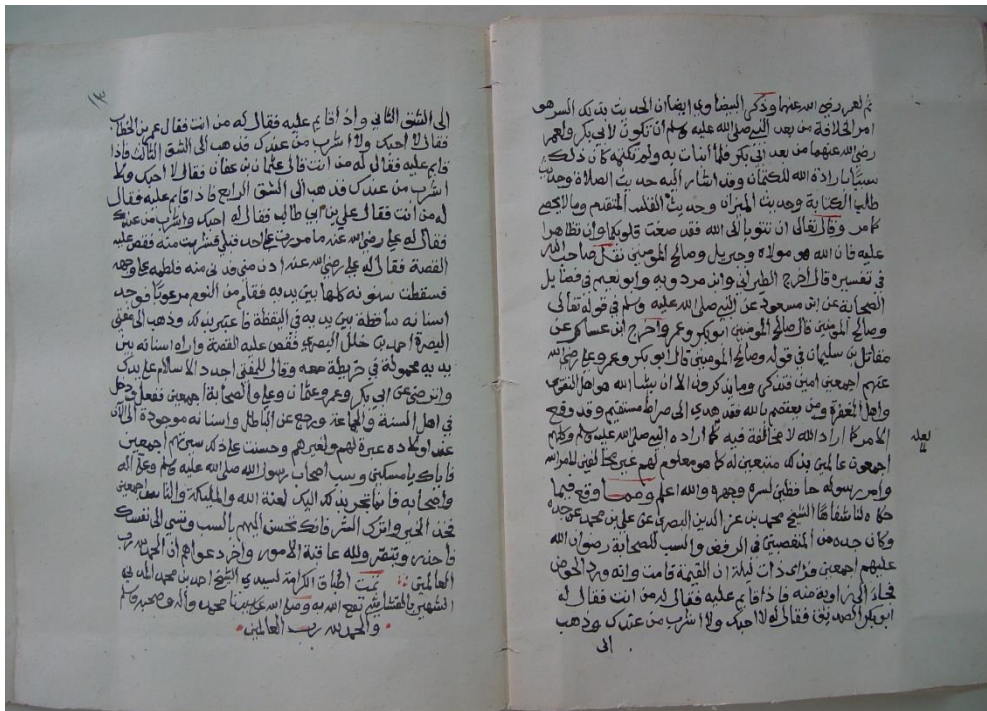 ثم لعمر رضي الله عنهما وذكر البيضاوي ايضا ان الحديث بذلك السر هو
امر الخلافة من بعد النبي صلى الله عليه وسلم ان تكون لابي بكر ولعمر
رضي الله عنهما من بعد ابي بكر فلما انبات به ولم تكتمه كان ذلك
سببا بارادة الله للكتمان وقد اشار اليه حديث الصلاة وحديث
طلب الكتابة وحديث الميزان وحديث القلب المتقدم وما لا يحصى
كما مر وقال تعالى ان تتوبا الى الله فقد صغت قلوبكما وان تظاهرا
عليه فان الله هو مولاه وجبريل وصالح المومنين نقل صاحب
في تفسيره قال اخرج الطبراني وابن مردويه وابو نعيم في فضايل
الصحابة عن ابن مسعود عن النبي صلى الله عليه وسلم في قوله تعالى
وصالح المومنين قال صالح المومنين ابو بكر وعمر واخرج ابن عساكر عن
مقاتل بن سليمان في قوله وصالح المومنين قال ابو بكر وعمر وعلي رضي الله
عنهم اجمعين امين فتذكر وما يذكرون الا ان يشا الله هو اهل التقوى
واهل المغفرة ومن يعتصم بالله فقد هدي الى صراط مستقيم وقد وقع
الامر كما اراد الله لا مخالفة فيه كما اراده النبي صلى الله عليه وسلم وكلهم
لعله
اجمعون عالمين بذلك متبعين له كما هو معلوم لهم غير مخالفين لامر الله
وامر رسوله حافظين لسره وجهره والله اعلم ومما وقع فيما
حكاه لنا شفاها الشيخ محمد بن عز الدين البصري عن علي بن محمد عن جده
وكان جده من المتعصبين في الرفض والسب للصحابة رضوان الله
عليهم اجمعين فراى ذات ليلة ان القيمة قامت وانه ورد الحوض
فجاء الى زاوية منه فاذا قايم عليه فقال له من انت فقال له
ابو بكر الصديق فقال له لا احبك ولا اشرب من عندك وذهب
الى
الى الشق الثاني واذا قايم عليه فقال له من انت فقال عمر بن الخطاب
فقال لا احبك ولا اشرب من عندك فذهب الى الشق الثالث فاذا
قايم عليه فقال له من انت قال عثمان بن عفان فقال لا احبك ولا
اشرب من عندك فذهب الى الشق الرابع فاذا قايم عليه فقال
له من انت فقال علي بن ابي طالب فقال له احبك واشرب من عندك
فقال له علي رضي الله عنه ما مررت على احد قبلي فشربت منه فقص عليه
القصة فقال له علي رضي الله عنه ادن مني فدنى منه فلطمه على وجهه
فسقطت سنونه كلها بين يديه فقام من النوم مرعوبا فوجد
اسنانه ساقطة بين يديه في اليقظة فاعتبر بذلك وذهب الى مفتي
البصرة احمد بن خلل البصري فقص عليه القصة واراه اسنانه بين
يديه محمولة في خريطة معه وقال للمفتي اجدد الاسلام على يدك
واترضى عن ابي بكر وعمر وعثمان وعلي والصحابة اجمعين ففعل ودخل
في اهل السنة والجماعة ورجع عن الباطل واسنانه موجودة الى الان
عند اولاده عبرة لهم ولغيرهم وحسنت على ذلك سيرتهم اجمعين
فاياك يا مسكين وسب اصحاب رسول الله صلى الله عليه وسلم وعلى اله
واصحابه فانما تجر بذلك اليك لعنة الله والمليكة والناس اجمعين
فخذ الخير واترك الشر فانك تحسن اليهم بالسب وتسى الى نفسك
فاحذر وتبصر ولله عاقبة الامور واخر دعواهم ان الحمد لله رب
العالمين تمت اطباق الكرامة لسيدي الشيخ احمد بن محمد المدني
الشهير بالقشاشي نفع الله به وصلى الله على سيدنا محمد واله وصحبه وسلم
والحمد لله رب العالمين